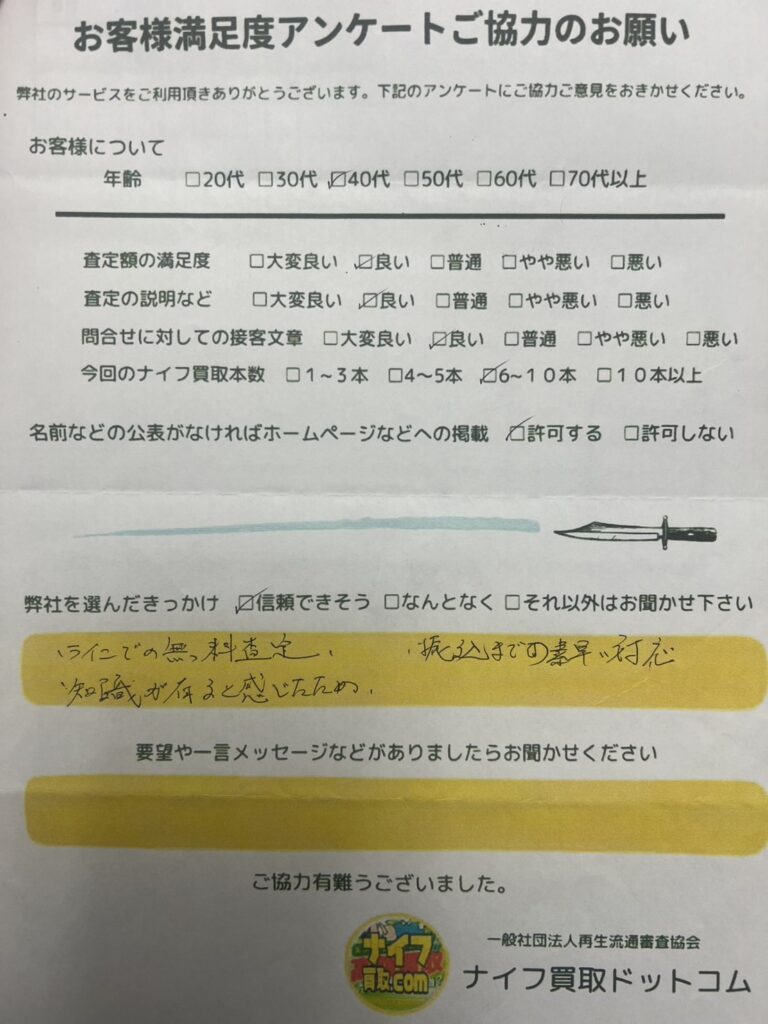 お客様満足度アンケートご協力のお願い
弊社のサービスをご利用頂きありがとうございます。下記のアンケートにご協力ご意見をおきかせください。
お客様について
年齢 □20代 □30代 ☑40代 □50代 □60代 □70代以上
査定額の満足度 □大変良い ☑良い □普通 □やや悪い □悪い
査定の説明など □大変良い ☑良い □普通 □やや悪い □悪い
問合せに対しての接客文章 □大変良い ☑良い □普通 □やや悪い □悪い
今回のナイフ買取本数 □1~3本 □4~5本 ☑6~10本 □10本以上
名前などの公表がなければホームページなどへの掲載 ☑許可する □許可しない
弊社を選んだきっかけ ☑信頼できそう □なんとなく □それ以外はお聞かせ下さい
・ラインでの無料査定、 ・振込までの素早い対応
知識が有ると感じたため、
要望や一言メッセージなどがありましたらお聞かせください
ご協力有難うございました。
ナイフ
買取.com
一般社団法人再生流通審査協会
ナイフ買取ドットコム